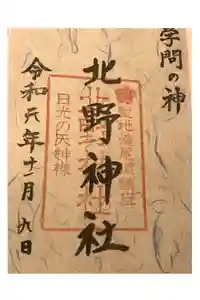 学問の神
北野神社
日光の天神様
令和元年十一月九日